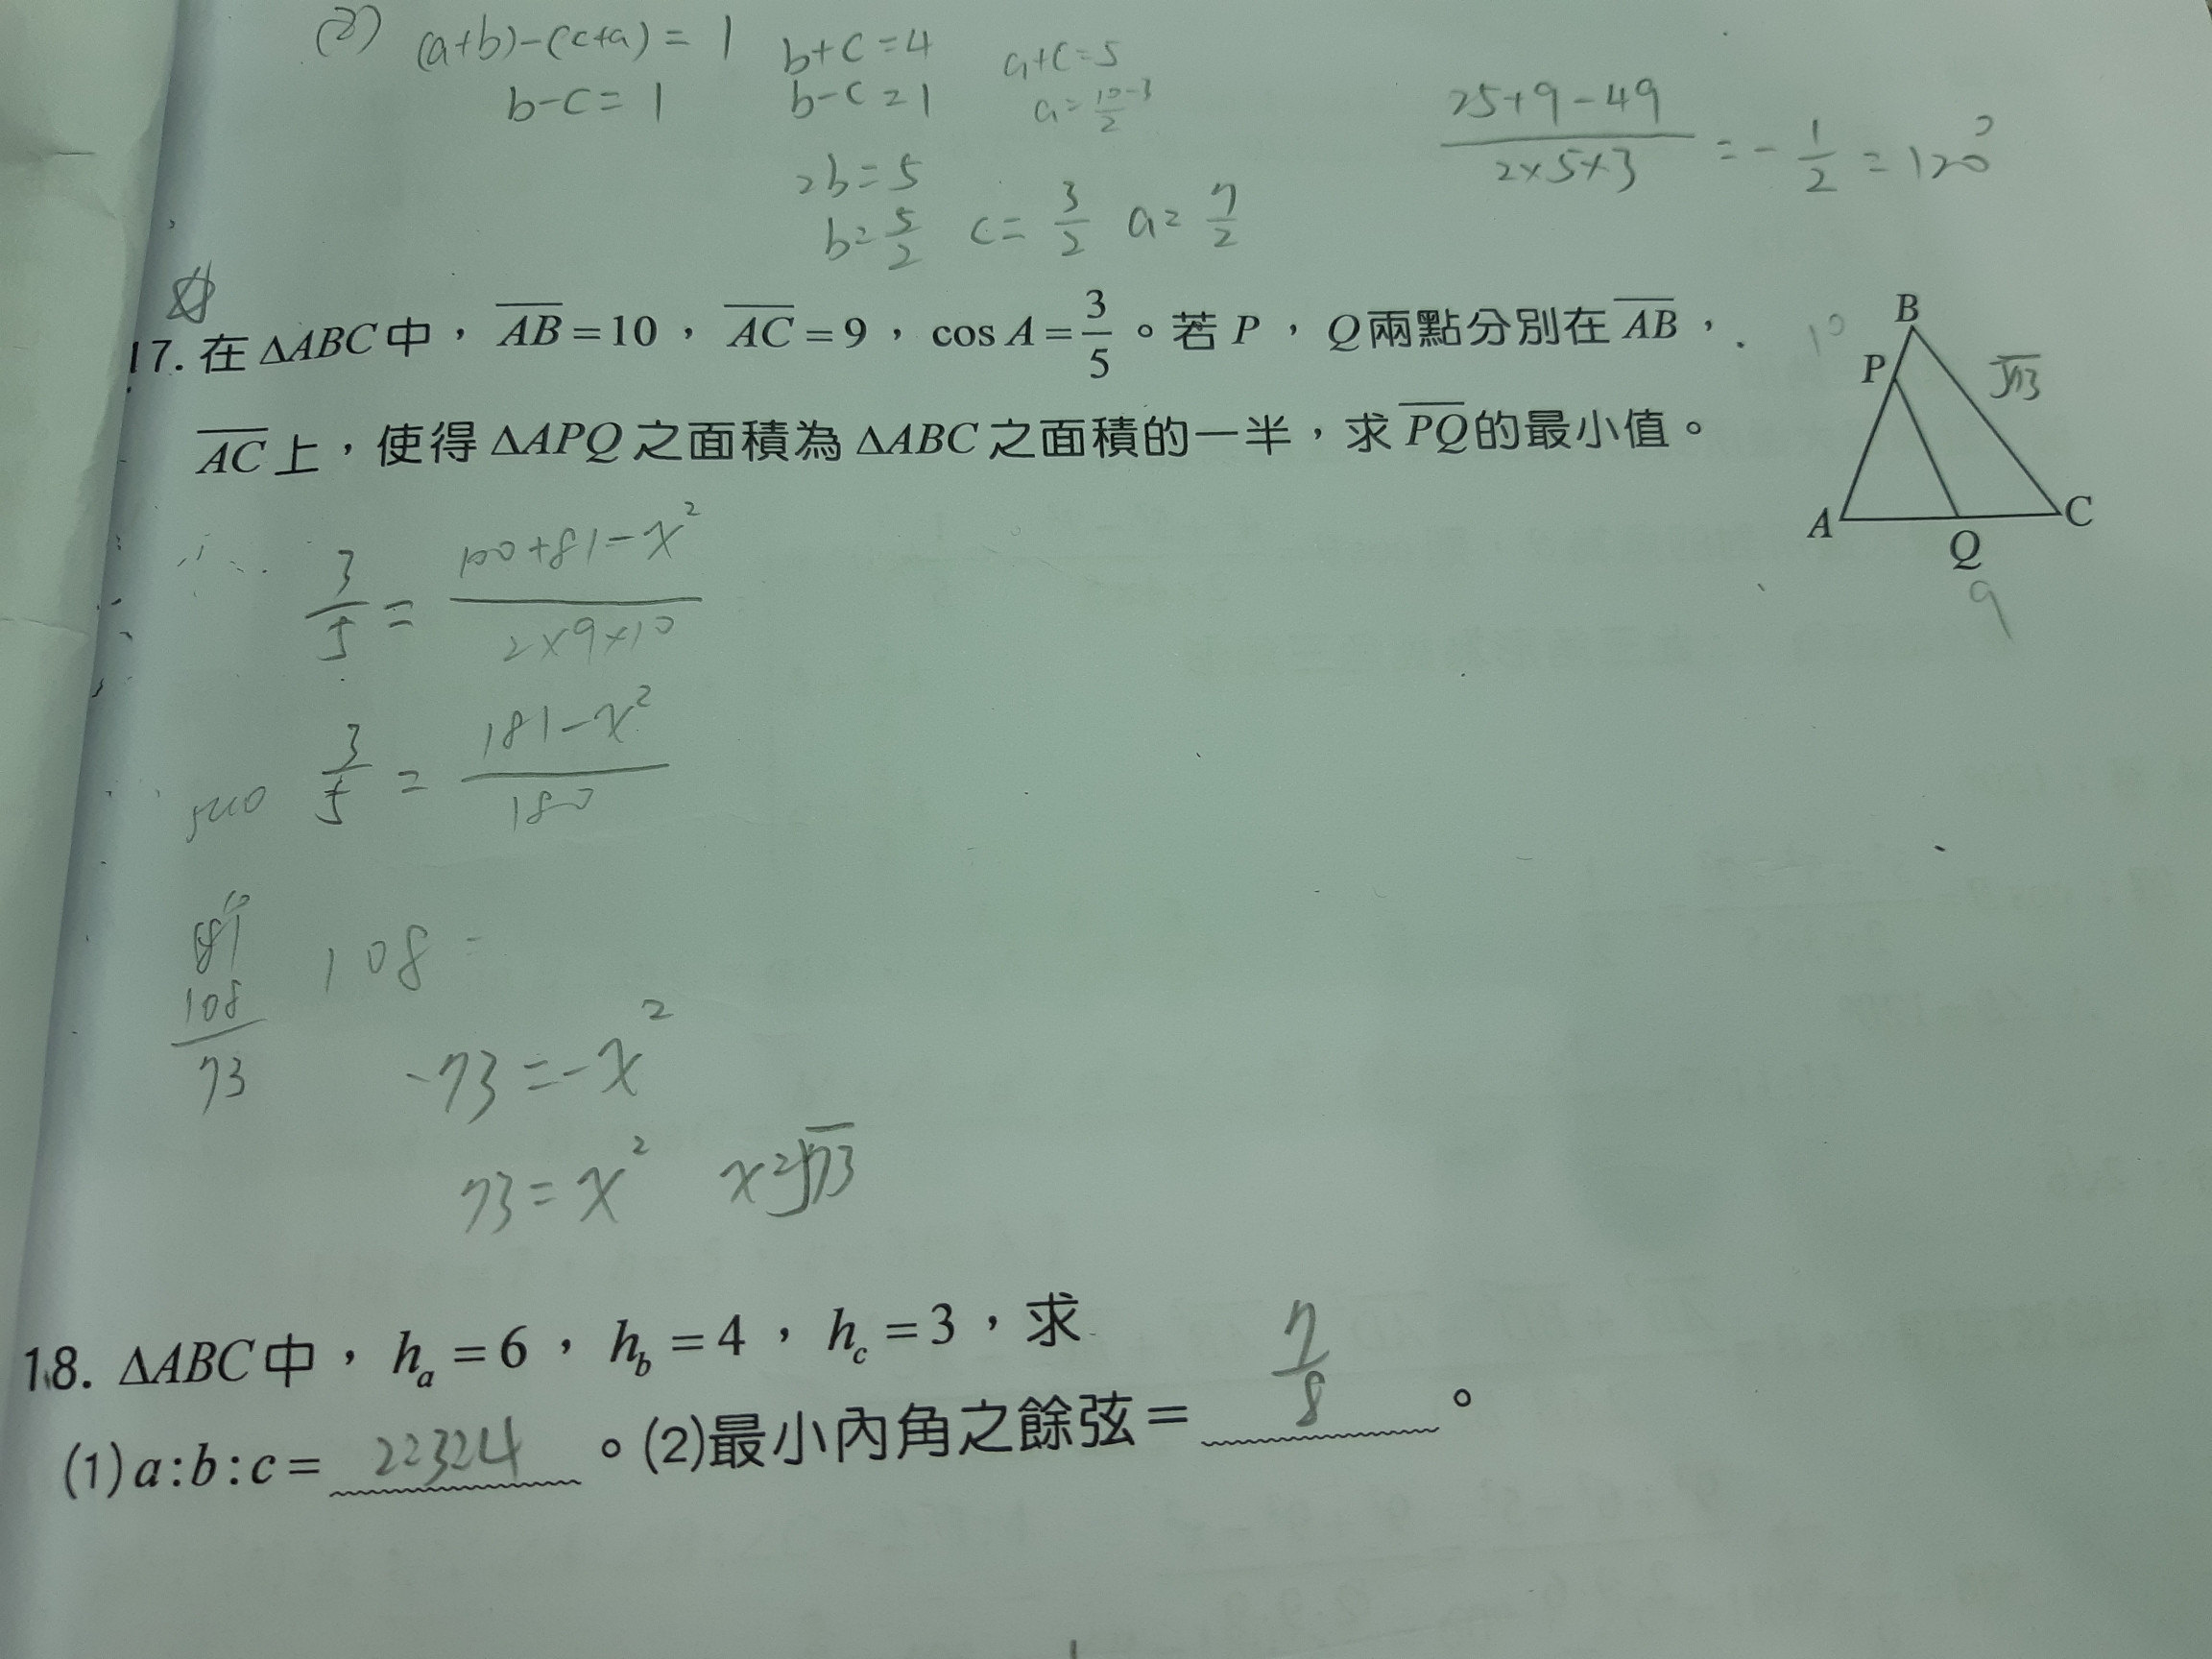 (2) (a+b)-(c+a)=1 b+c=4 a+c=5
b-c=1 b-c=1 a=\frac{10-3}{2}
\frac{25+9-49}{2×5×3}=-\frac{1}{2}=120°
2b=5
b=\frac{5}{2} c=\frac{3}{2} a=\frac{7}{2}
17. 在ΔABC中，\overline{AB}=10，\overline{AC}=9，cos A=\frac{3}{5}。若P，Q兩點分別在\overline{AB}，
\overline{AC}上，使得ΔAPQ之面積為ΔABC之面積的一半，求\overline{PQ}的最小值。
10 B
P √73
A Q C
9
\frac{3}{5}=\frac{100+81-x²}{2×9×10}
\frac{3}{5}=\frac{181-x²}{180}
540
181 108=
108
73 -73=-x²
73=x² x=√73
18. ΔABC中，h_a=6，h_b=4，h_c=3，求
(1) a:b:c= 2:3:4 。(2)最小內角之餘弦= \frac{7}{8} 。